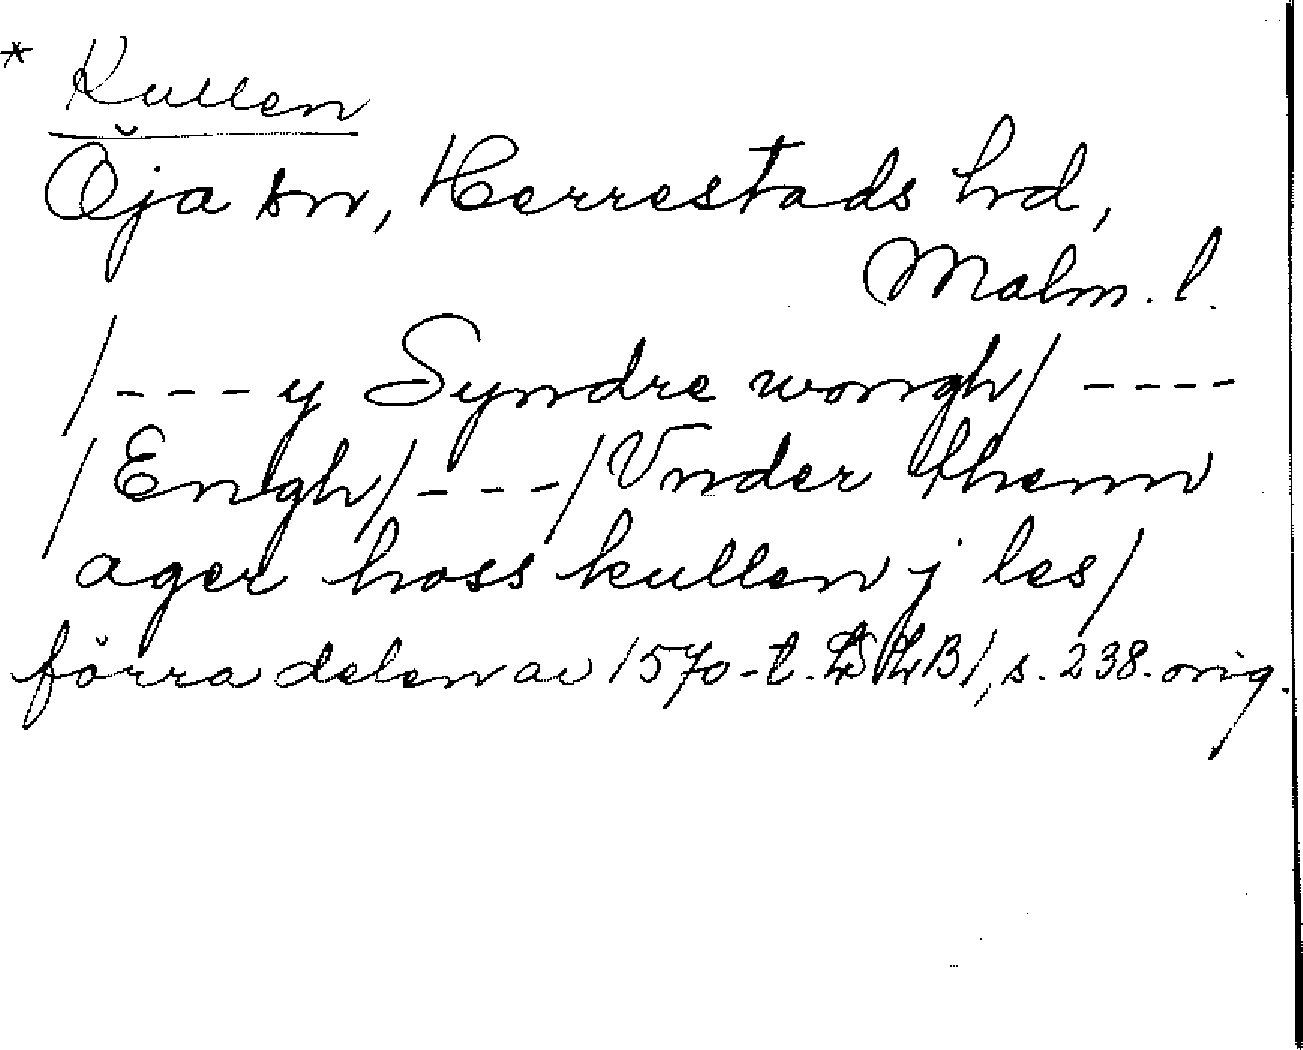 * Kullen
Öja sn, Herrestads hd,
Malm. l.
/---y Syndre wongh/ ----
/Engh/---/Vnder thenn
ager hoss kullen j les/
förra delen av 1570-t. LSLB/, s. 238. orig.